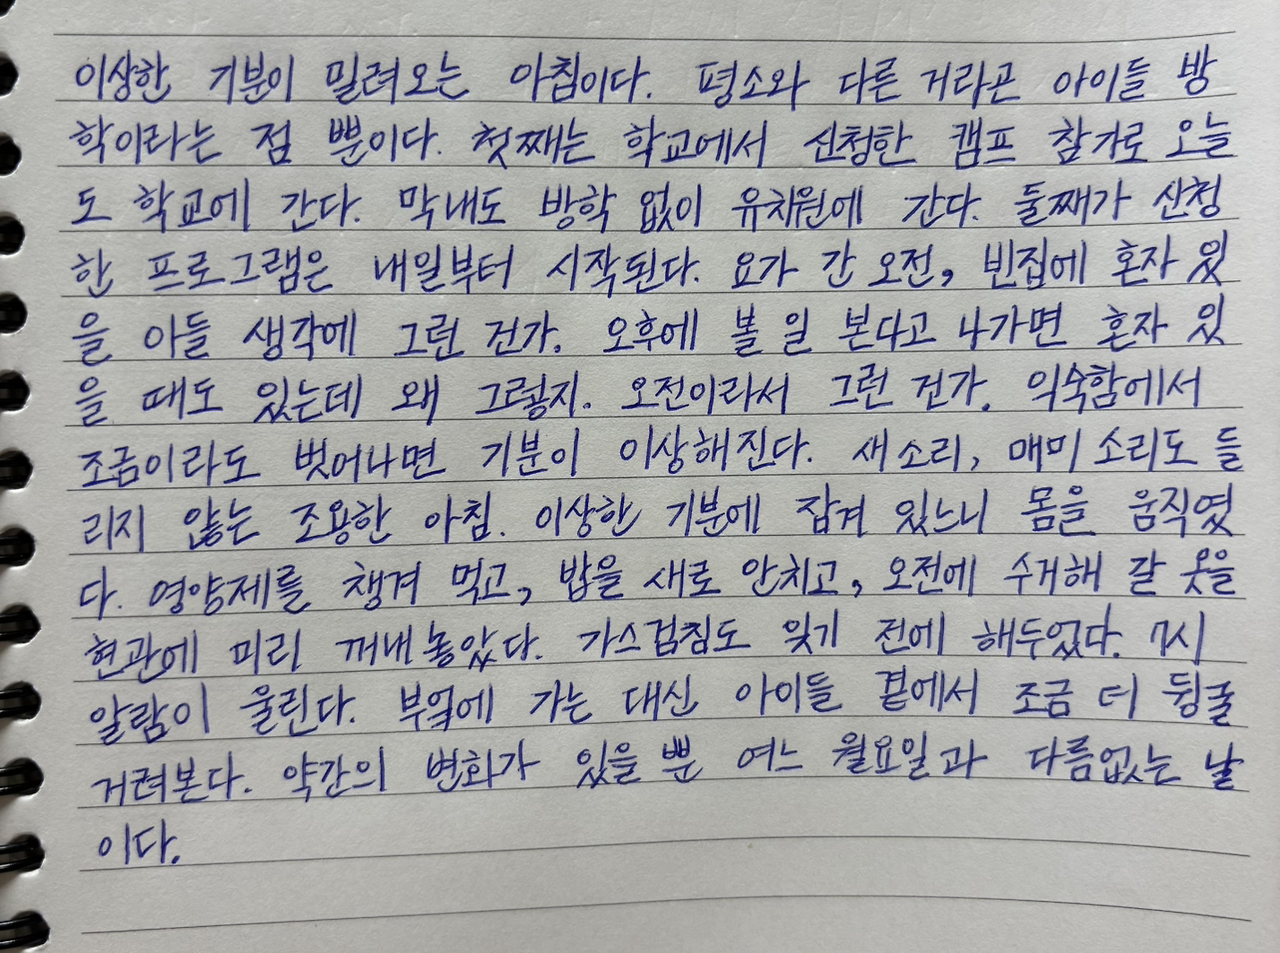 이상한 기분이 밀려오는 아침이다. 평소와 다른 거라곤 아이들 방
학이라는 점 뿐이다. 첫째는 학교에서 신청한 캠프 참가로 오늘
도 학교에 간다. 막내도 방학 없이 유치원에 간다. 둘째가 신청
한 프로그램은 내일부터 시작된다. 요가 간 오전, 빈집에 혼자 있
을 아들 생각에 그런 건가. 오후에 볼 일 본다고 나가면 혼자 있
을 때도 있는데 왜 그렇지. 오전이라서 그런 건가. 익숙함에서
조금이라도 벗어나면 기분이 이상해진다. 새소리, 매미 소리도 들
리지 않는 조용한 아침. 이상한 기분에 잡겨 있느니 몸을 움직였
다. 영양제를 챙겨 먹고, 밥을 새로 안치고, 오전에 수거해 갈 옷을
현관에 미리 꺼내놓았다. 가스검침도 잊기 전에 해두었다. 7시
알람이 울린다. 부엌에 가는 대신 아이들 곁에서 조금 더 뒹굴
거려본다. 약간의 변화가 있을 뿐 여느 월요일과 다름없는 날
이다.